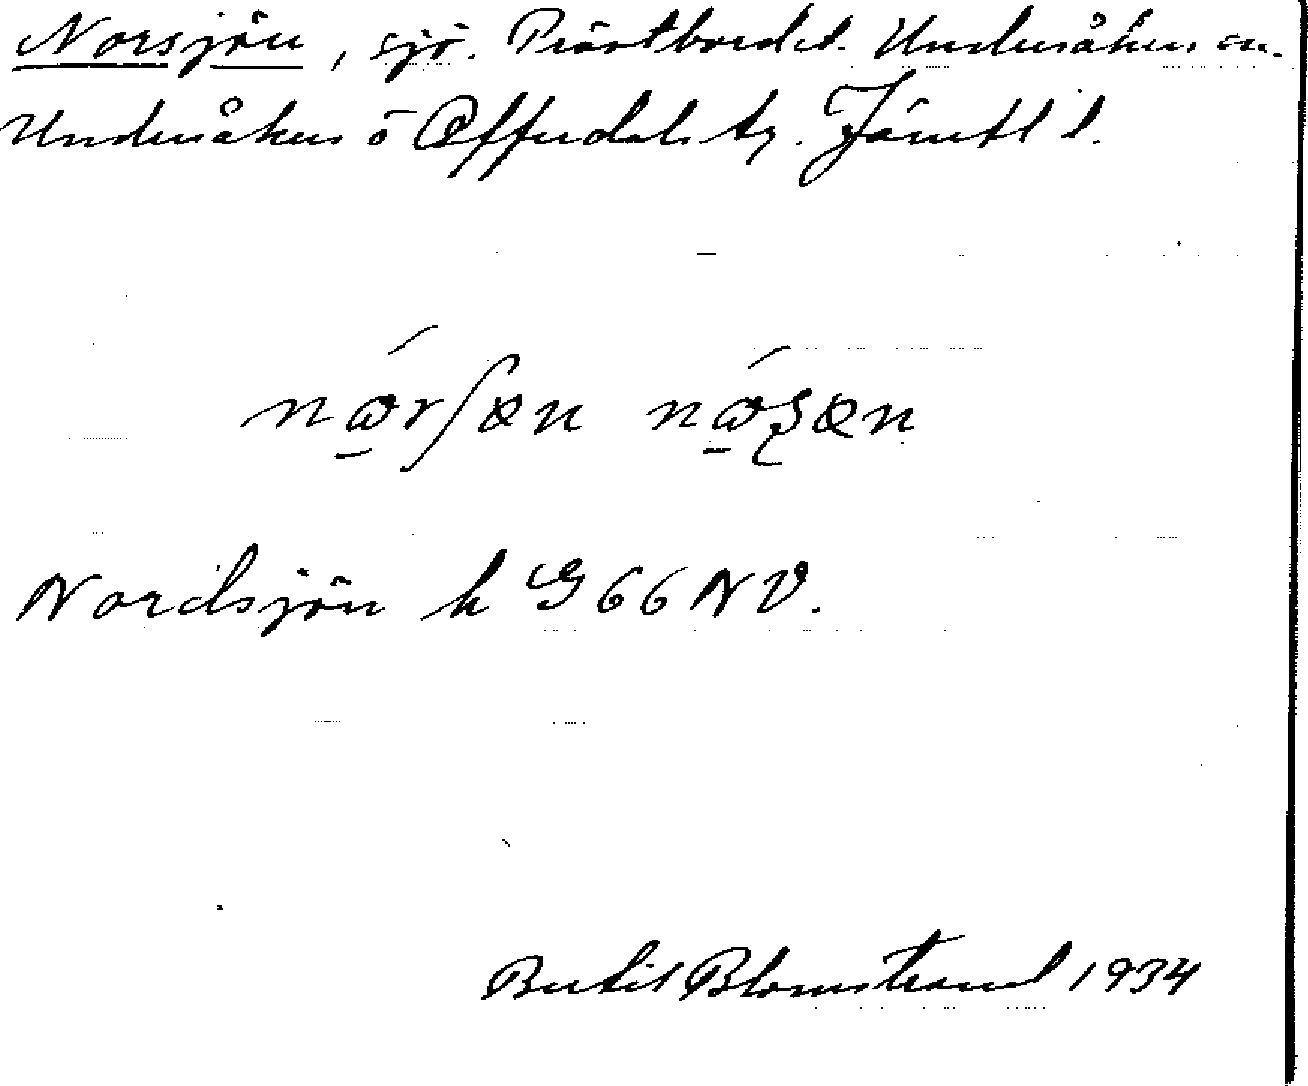 Norsjön, sjö. Prästbordet. Undersåkers sn.
Undersåkers o Offerdals tg. Jämtl l.
nώ̱rſœn nώ̱ʂœn
Nordsjön k G 66 NV.
Bertil Blomstrand 1934